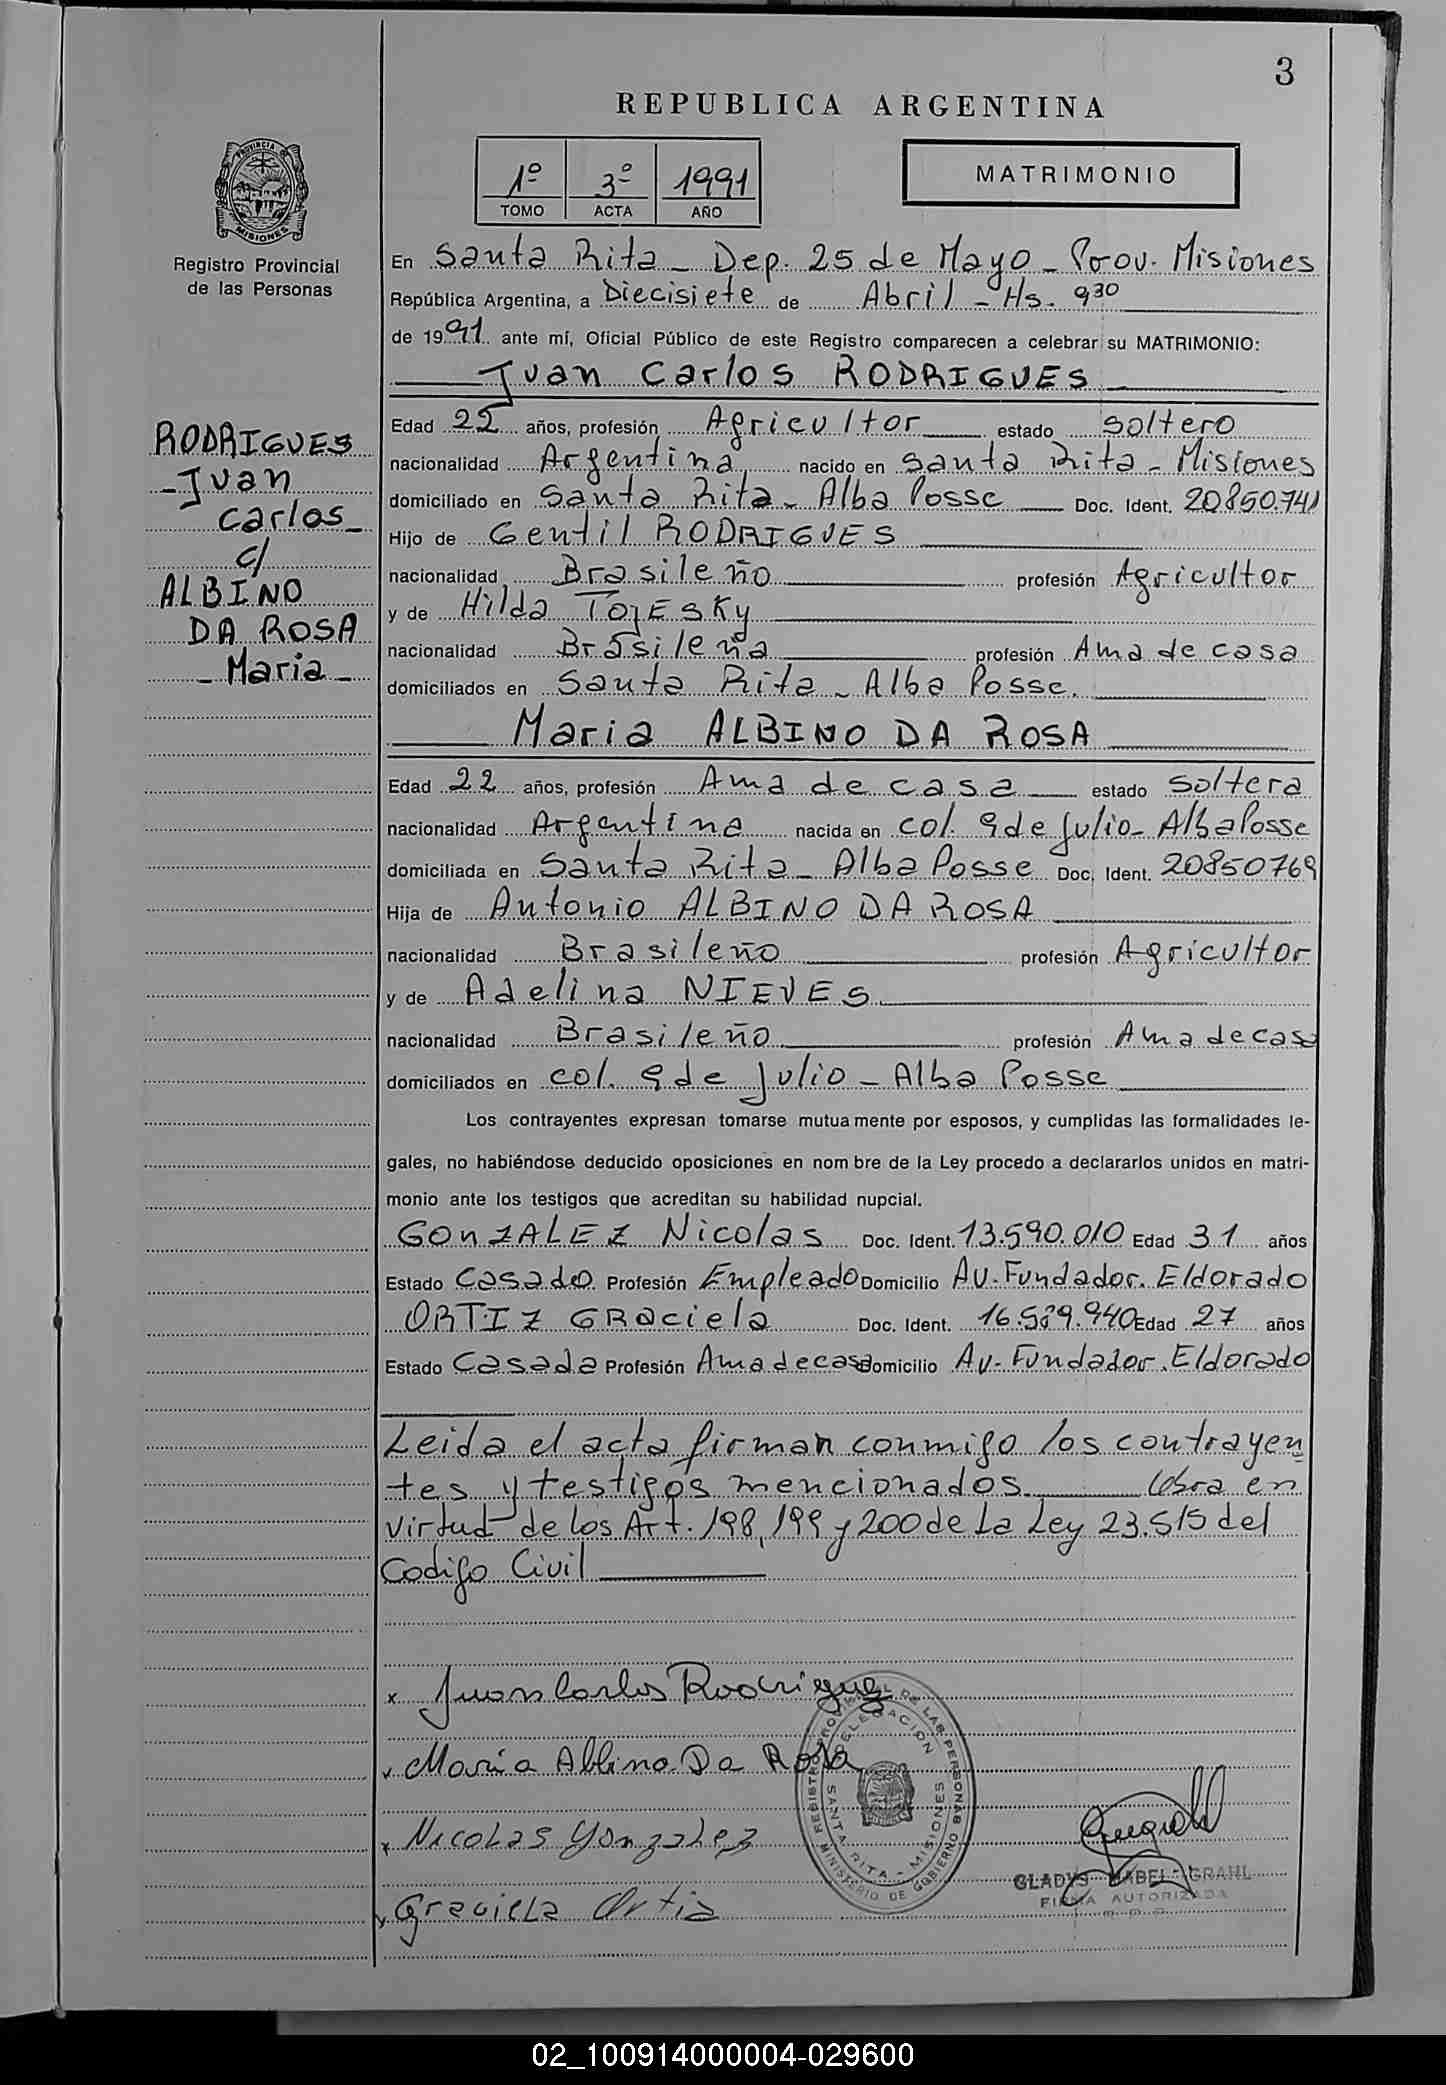 3
REPUBLICA ARGENTINA
1º 3º 1991
TOMO ACTA AÑO
MATRIMONIO
PROVINCIA DE MISIONES
Registro Provincial
de las Personas
RODRIGUES
- Juan
Carlos -
c/
ALBINO
DA ROSA
- Maria -
En Santa Rita - Dep. 25 de Mayo - Prov. Misiones
República Argentina, a Diecisiete de Abril - Hs. 930
de 1991 ante mí, Oficial Público de este Registro comparecen a celebrar su MATRIMONIO:
Juan Carlos RODRIGUES
Edad 22 años, profesión Agricultor estado soltero
nacionalidad Argentina nacido en Santa Rita - Misiones
domiciliado en Santa Rita - Alba Posse Doc. Ident. 20850.741
Hijo de Gentil RODRIGUES
nacionalidad Brasileño profesión Agricultor
y de Hilda
nacionalidad Brasileña profesión Ama de casa
domiciliados en Santa Rita - Alba Posse.
Maria ALBINO DA ROSA
Edad 22 años, profesión Ama de casa estado soltera
nacionalidad Argentina nacida en Col. 9 de Julio - Alba Posse
domiciliada en Santa Rita - Alba Posse Doc. Ident. 20850769
Hija de Antonio ALBINO DA ROSA
nacionalidad Brasileño profesión Agricultor
y de Adelina NIEVES
nacionalidad Brasileño profesión Ama de casa
domiciliados en Col. 9 de Julio - Alba Posse
Los contrayentes expresan tomarse mutuamente por esposos, y cumplidas las formalidades le-
gales, no habiéndose deducido oposiciones en nombre de la Ley procedo a declararlos unidos en matri-
monio ante los testigos que acreditan su habilidad nupcial.
GONZALEZ Nicolas Doc. Ident. 13.590.010 Edad 31 años
Estado Casado Profesión Empleado Domicilio Av. Fundador. Eldorado
ORTIZ GRaciela Doc. Ident. 16.589.940 Edad 27 años
Estado Casada Profesión Ama de casa Domicilio Av. Fundador. Eldorado
Leida el acta firman conmigo los contrayen
tes y testigos mencionados en
virtud de los Art. 198, 199 y 200 de La Ley 23.515 del
Codigo Civil
x Juan Carlos Rodriguez
x Maria Albino Da Rosa
x Nicolas Gonzalez
x Graciela Ortis
REGISTRO PROVINCIAL DE LAS PERSONAS
DELEGACION
SANTA RITA - MISIONES
MINISTERIO DE GOBIERNO
GLADYS MABEL GRAHL
FIRMA AUTORIZADA
02_100914000004-029600